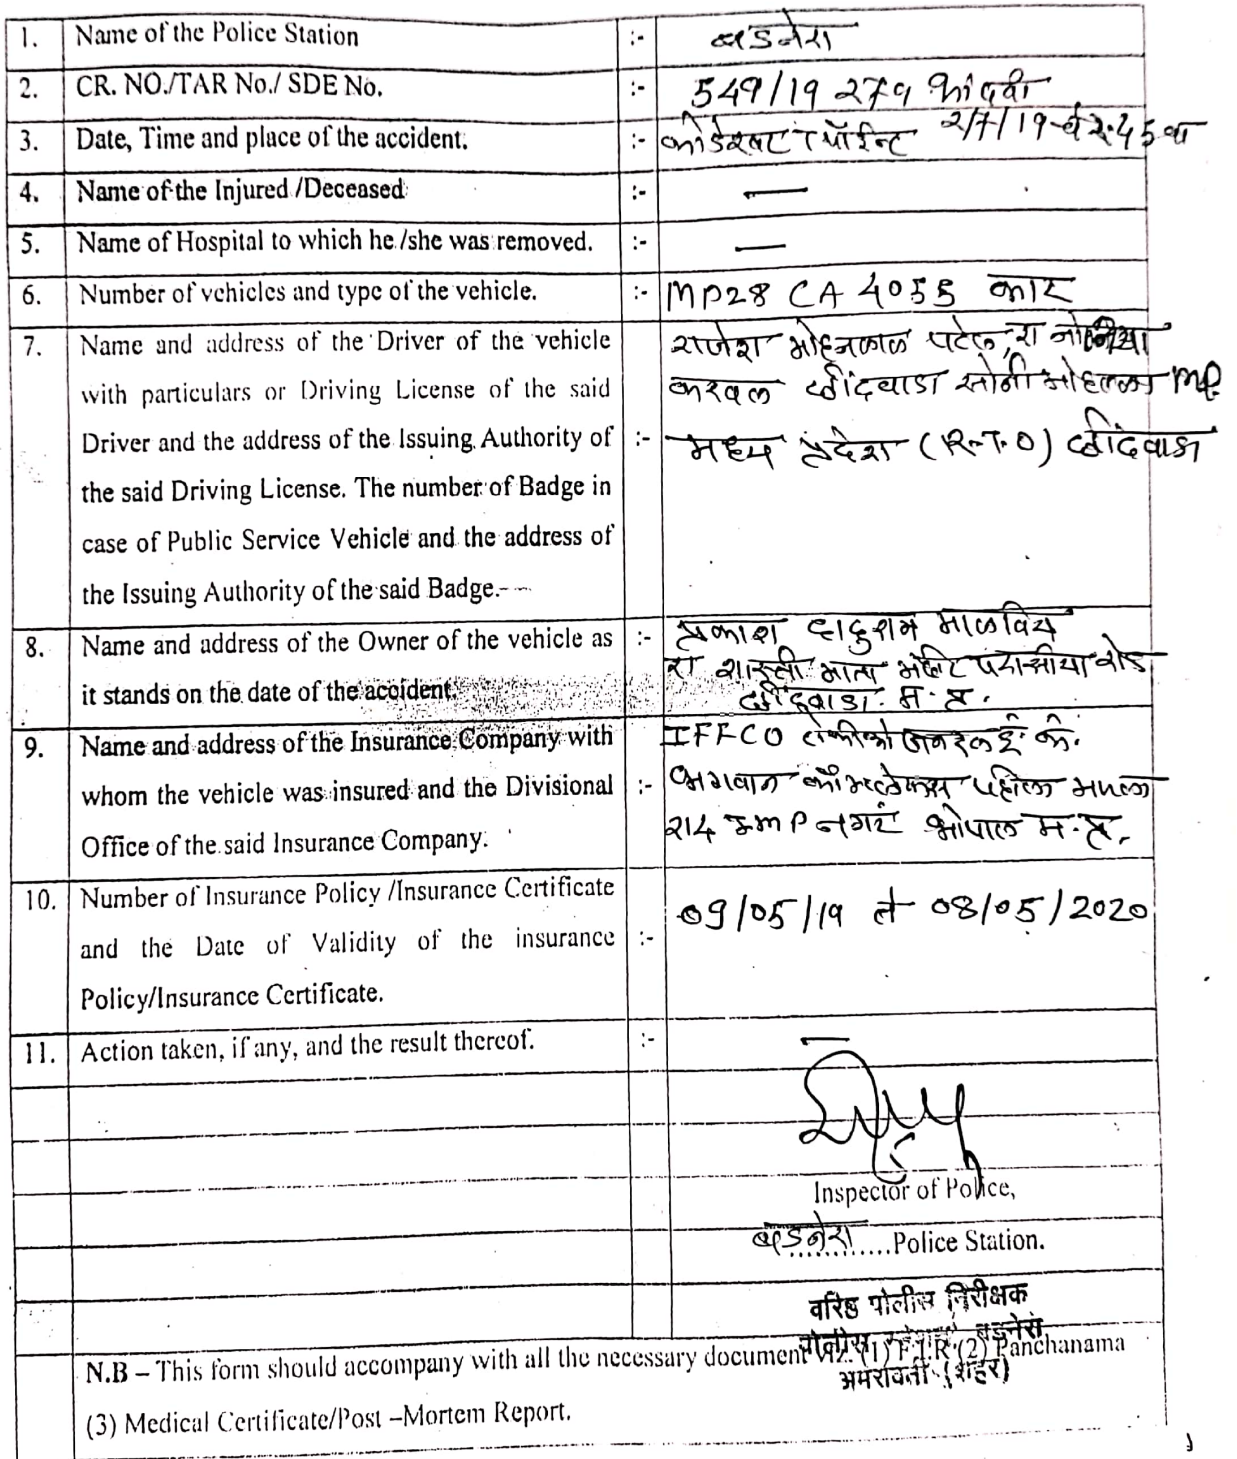 1. Name of the Police Station :- बडनेरा
2. CR. NO./TAR No./ SDE No. :- 549/19 279 भादवी
3. Date, Time and place of the accident. :- पॉईन्ट 2/7/19 चे 2.45 वा
4. Name of the Injured /Deceased :- —
5. Name of Hospital to which he /she was removed. :- —
6. Number of vehicles and type of the vehicle. :- MP28 CA 4055 कार
7. Name and address of the Driver of the vehicle
with particulars or Driving License of the said
Driver and the address of the Issuing Authority of :-
the said Driving License. The number of Badge in
case of Public Service Vehicle and the address of
the Issuing Authority of the said Badge.-
राजेश मोहनलाल पटेल, रा
छींदवाडा सोनी मोहल्ला MP.
मध्य प्रदेश (R.T.O) छींदवाडा
8. Name and address of the Owner of the vehicle as :-
it stands on the date of the accident.
प्रकाश दादुराम माळविय
रा रोड
छींदवाडा. म. प्र.
9. Name and address of the Insurance Company with
whom the vehicle was insured and the Divisional :-
Office of the said Insurance Company.
IFFCO टोकीओ जनरल इं कं.
भगवान कॉम्प्लेक्स पहिला मजला
214 नगर भोपाल म.प्र.
10. Number of Insurance Policy /Insurance Certificate
and the Date of Validity of the insurance :-
Policy/Insurance Certificate.
09/05/19 ते 08/05/2020
11. Action taken, if any, and the result thereof. :- —
Inspector of Police,
बडनेरा............Police Station.
वरिष्ठ पोलीस निरीक्षक
पोलीस स्टेशन, बडनेरा
अमरावती (शहर)
N.B – This form should accompany with all the necessary document viz. (1) F.I.R (2) Panchanama
(3) Medical Certificate/Post –Mortem Report.